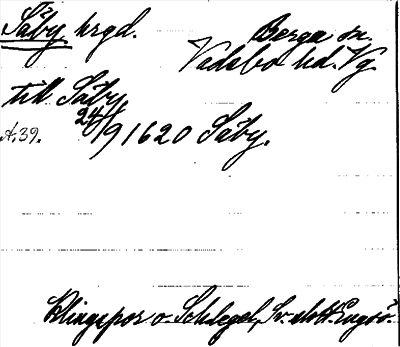 Säby hrgd. Berga sn.
Vadsbo hd. Vg
till Säby
A.39. 24/9 1620 Säby.
Klingspor o. Schlegel, Sv. slott. Engsö.